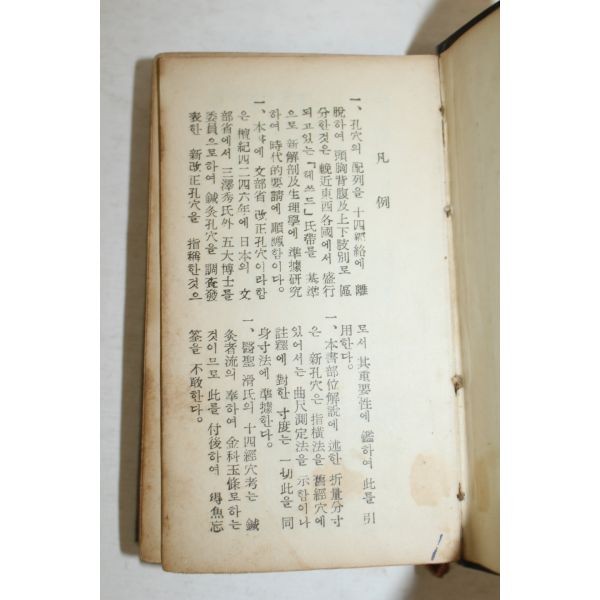 凡例
一、孔穴의 配列을 十四經絡에 離
脫하여 頭胸背腹及上下肢別로 區
分한것은 輓近東西各國에서 盛行
되고있는『헤쓰드』氏帶를 基準
으로 新解剖及生理學에 準據研究
하여 時代的要請에 順應함이다。
一、本書에 文部省 改正孔穴이라함
은 檀紀四二四六年에 日本의 文
部省에서 三澤秀氏外 五大博士를
委員으로하여 鍼灸孔穴을 調査發
表한 新改正孔穴을 指稱한것으
로서 其重要性에 鑑하여 此를 引
用한다。
一、本書部位解說에 述한 折量分寸
은 新孔穴은 指橫法을 舊經穴에
있어서는 曲尺測定法을 示함이나
註釋에 對한 寸度는 一切此을 同
身寸法에 準據한다。
一、醫聖 滑氏의 十四經穴考는 鍼
灸者流의 奉하여 金科玉條로하는
것이므로 此를 付後하여 得魚忘
筌을 不敢한다。